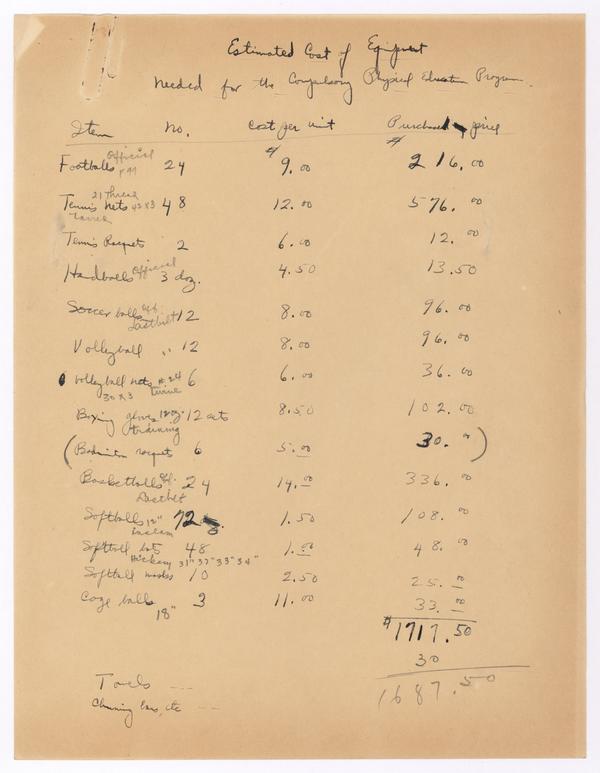 Estimated Cost of Equipment
Needed for the Compulsory Physical Education Program.
Item No. Cost per unit Purchased price
Official
Footballs 24 $ 9.00 $ 216.00
21 Thread
Tennis Nets 42 x 3 48 12.00 576.00
Tennis Racquets 2 6.00 12.00
Handballs Official 3 doz. 4.50 13.50
Soccer balls off. 12 8.00 96.00
Lastbilt
Volleyball " 12 8.00 96.00
Volleyball nets # 24 6 6.00 36.00
30 x 3 twine
Boxing gloves 12 oz. 12 sets 8.50 102.00
training
(Badminton racquets 6 5.00 30.00)
Basketballs off. 24 14.00 336.00
Lastbilt
Softballs 12" 72 1.50 108.00
Softball bats 48 1.00 48.00
Hickory 31" 32" 33" 34"
Softball masks 10 2.50 25.00
Cage balls 3 11.00 33.00
18"
$1717.50
30
1687.50
Towels ---
etc --